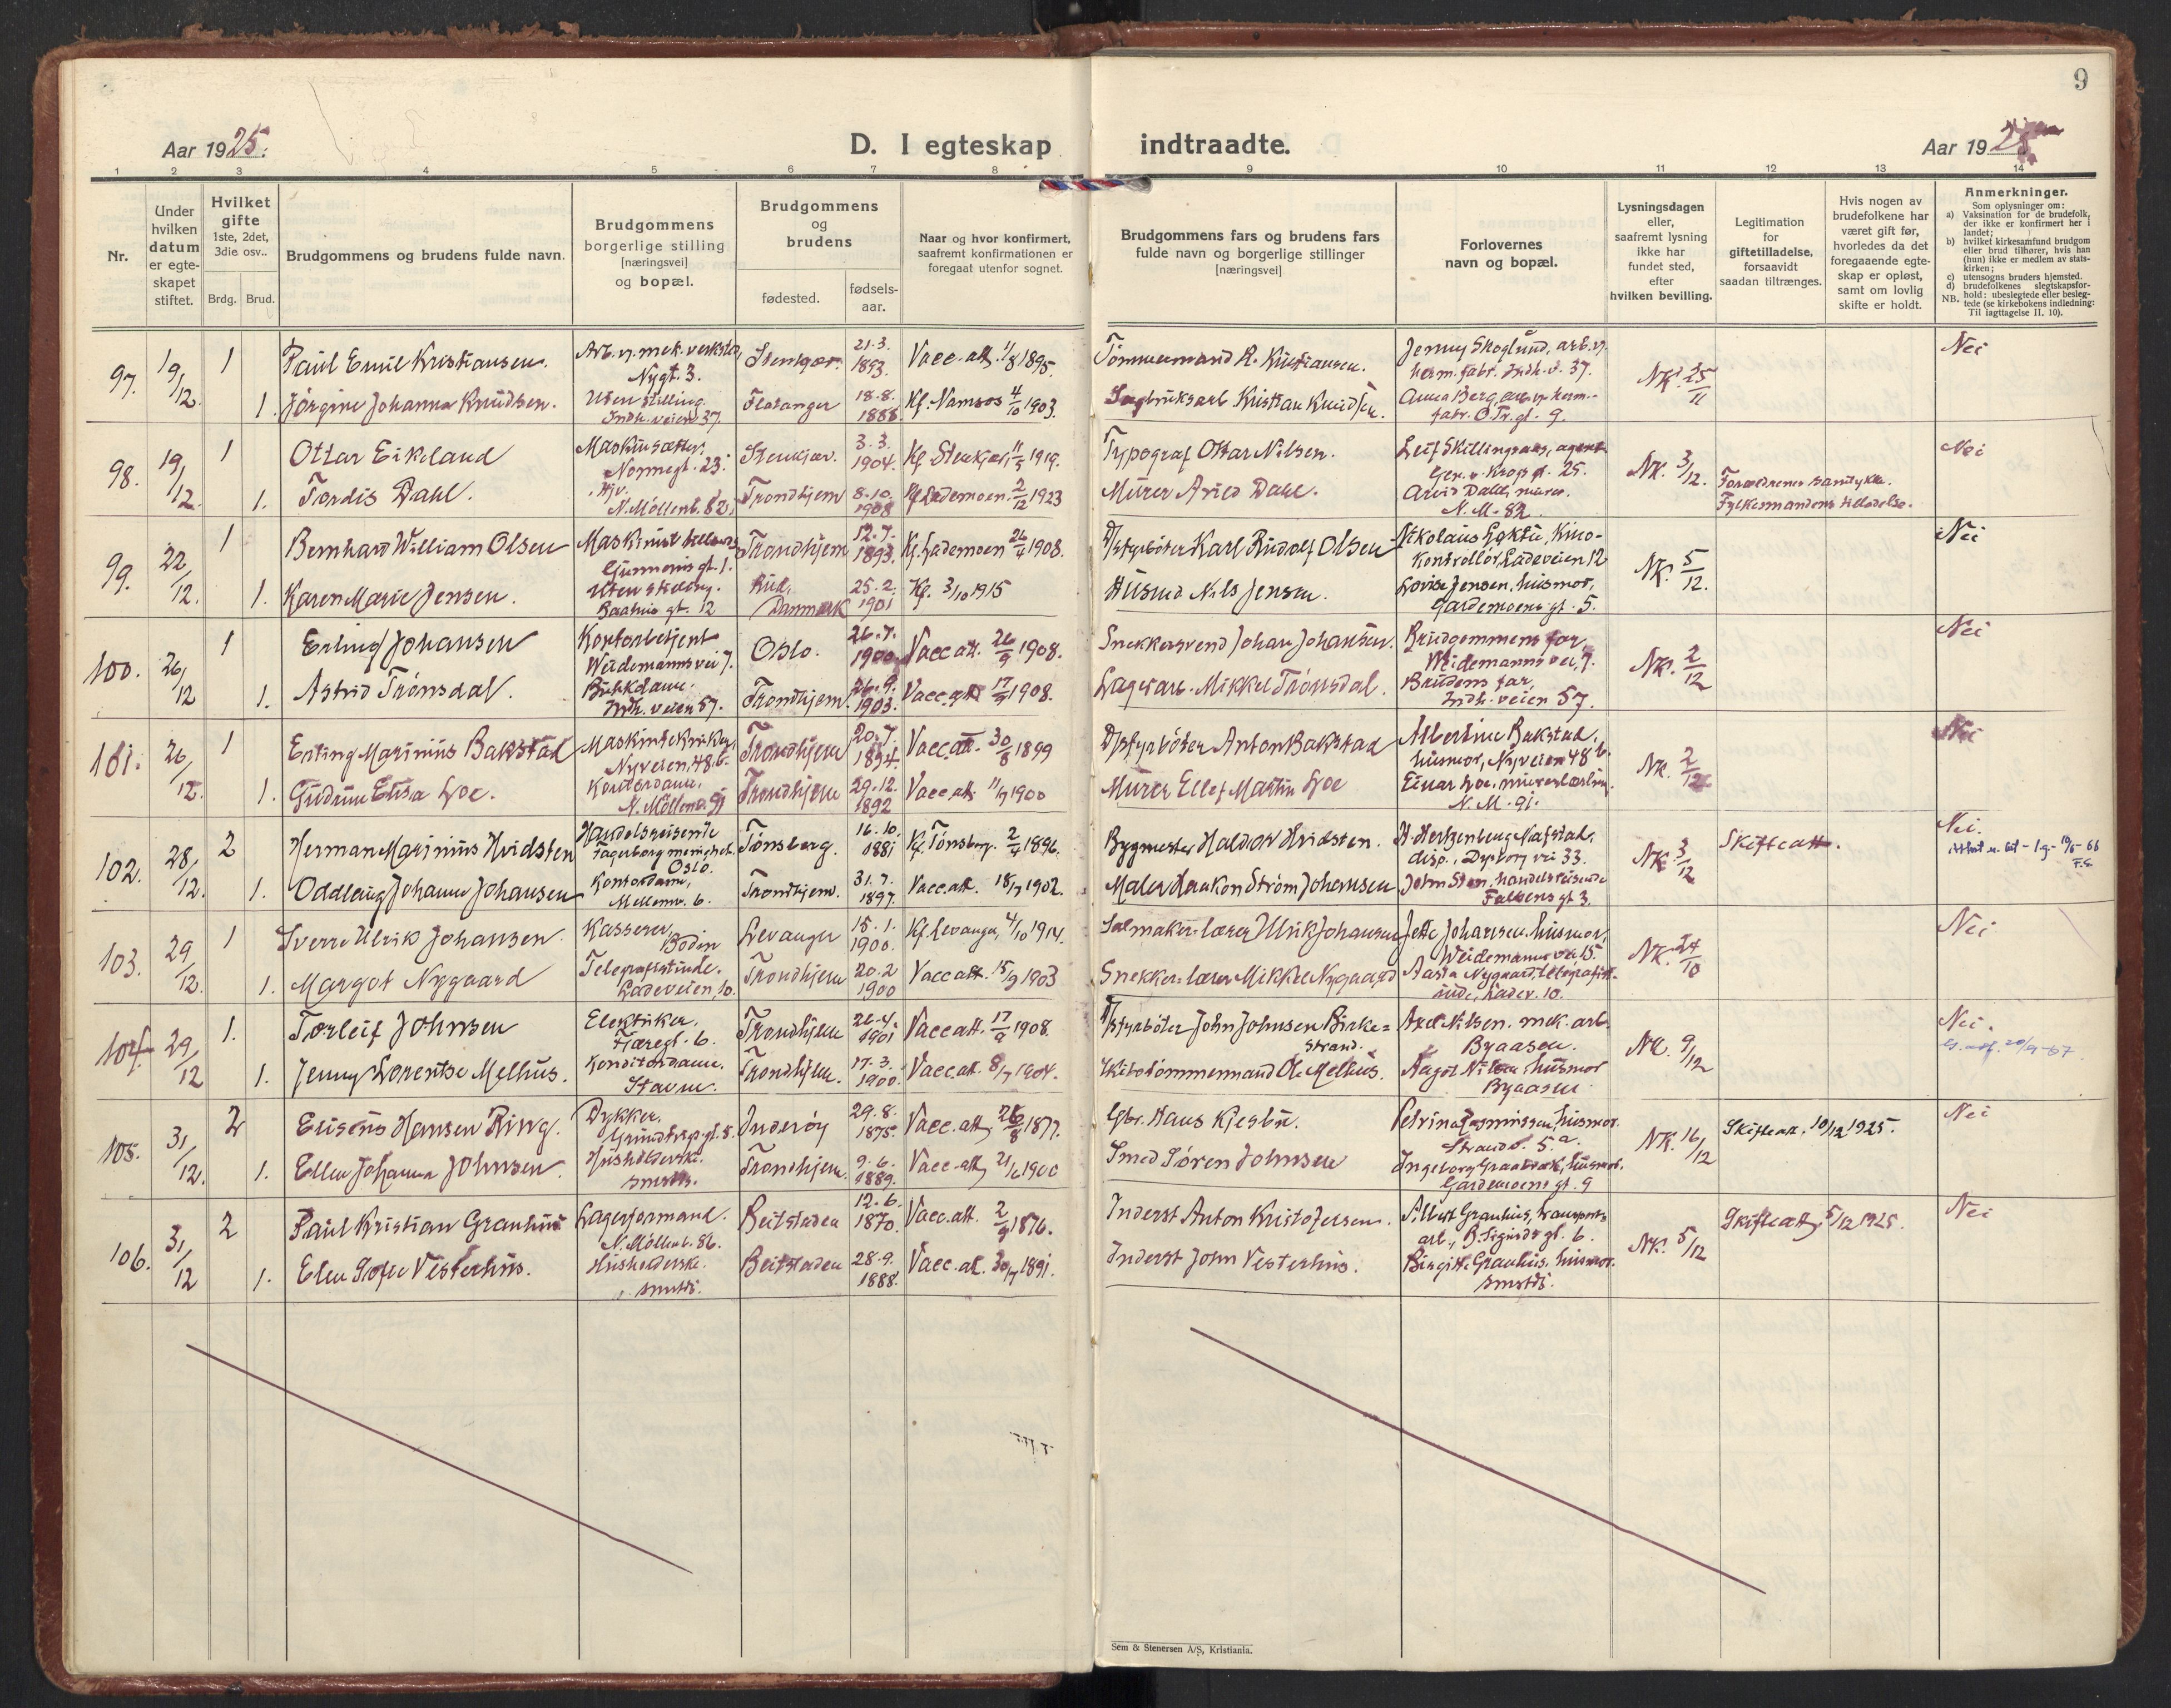 9
Aar 1925.
D. I egteskap
indtraadte.
Aar 1925
1 2 3 4 5 6 7 8
9 10 11 12 13 14
Nr.
Under hvilken datum er egte-skapet stiftet.
Hvilket gifte 1ste, 2det, 3die osv..
Brdg. Brud.
Brudgommens og brudens fulde navn.
Brudgommens borgerlige stilling [næringsvei] og bopæl.
Brudgommens og brudens
fødested.
fødsels-aar.
Naar og hvor konfirmert, saafremt konfirmationen er foregaat utenfor sognet.
Brudgommens fars og brudens fars fulde navn og borgerlige stillinger [næringsvei]
Forlovernes navn og bopæl.
Lysningsdagen eller, saafremt lysning ikke har fundet sted, efter hvilken bevilling.
Legitimation for giftetilladelse, forsaavidt saadan tiltrænges.
Hvis nogen av brudefolkene har været gift før, hvorledes da det foregaaende egte-skap er opløst, samt om lovlig skifte er holdt.
Anmerkninger.
Som oplysninger om:
a) Vaksination for de brudefolk, der ikke er konfirmert her i landet;
b) hvilket kirkesamfund brudgom eller brud tilhører, hvis han (hun) ikke er medlem av stats-kirken;
c) utensogns bruders hjemsted.
d) brudefolkenes slegtskapsfor-hold: ubeslegtede eller besleg-tede (se kirkebokens indledning:
NB. Til iagttagelse II. 10).
97. 19/12. 1 Paul Emil Kristiansen. Arb. v. mek. verksted, Nygt. 3. Stenkjær. 21.3. 1893. Vacc. att. 11/8 1895. Tömmermand R. Kristiansen. Jenny Skoglund, arb. v. herm. fabr. Indh. v. 37. NK. 25/11 Nei
1. Jörgine Johanna Knudsen. Uten stilling. Indh. veien 37. Flatanger 18.8. 1888. Kf. Namsos 4/10 1903. Sagbruksarb Kristian Knudsen. Anna Berg, arb. v. herm.-fabr. O. Tr. gt. 9.
98. 19/12. 1 Ottar Eikeland Maskinsætter, Nonnegt. 23. Stenkjær. 3.3. 1904. Kf. Stenkjær, 11/5 1919. Typograf Ottar Nilsen. Leif Skillingsaas, agent Gen. v. Krogs gt. 25. NK. 3/12. Nei
1. Tordis Dahl. Hjv. N. Möllenb. 82. Trondhjem 8.10. 1908 Kf. Lademoen. 2/12 1923 Murer Arvid Dahl. Arvid Dahl, murer. N. M. 82. Forældrenes samtykke. Fylkesmandens tilladelse.
99. 22/12. 1 Bernhard William Olsen Maskinist Gunnerus gt. 1. Trondhjem 12.7. 1893. Kf. Lademoen 26/4 1908. D/sfyrböter Karl Rudolf Olsen Nikolaus Loktu, Kino-kontrollör, Ladeveien 12 NK. 5/12. Nei
1. Karen Marie Jensen. Uten stilling. Baahus gt. 12 Danmark 25.2. 1901 Kf. 3/10 1915 Husmd Nils Jensen. Lovise Jensen, husmor, Gardemoens gt. 5.
100. 26/12 1 Erling Johansen Kontorbetjent Weidemannsvei 7. Oslo. 26.7. 1900 Vacc att. 26/9 1908. Snekkersvend Johan Johansen. Brudgommens far, Weidemanns vei, 7. NK. 2/12 Nei
1. Astrid Trönsdal. Butikdame. Indh. veien 57. Trondhjem. 26.9. 1903. Vacc. att 17/9 1908. Lagerarb. Mikkel Trönsdal. Brudens far, Indh. veien 57.
101. 26/12. 1 Erling Marinius Bakstad Maskintekniker, Nyveien, 48 b. Trondhjem 20.7. 1894. Vacc att. 30/8 1899 D/sfyrböter Anton Bakstad Albertine Bakstad, husmor, Nyveien 48 b. NK. 2/12. Nei
1. Gudrun Elisa Loe. Kontordame, N. Möllenb. 91 Trondhjem 29.12. 1892 Vacc att 11/9 1900 Murer Ellef Martin Loe Einar Loe, murerlærling. N. M. 91.
102. 28/12. 2 Herman Marinius Hvidsten Handelsreisende Fagerborg menighet. Oslo. Tönsberg. 16.10. 1881 Kf. Tönsberg. 2/4 1896. Bygmester Haldor Hvidsten. H. Hertzenberg Nafstad, disp., Dyrborg vei 33. NK 3/12 Skifteatt. Nei.
1. Oddlaug Johanne Johansen Kontordame, Mellemv. 6. Trondhjem. 31.7. 1897. Vacc. att. 18/7 1902. Maler Haakon Ström Johansen John Sten, handelsreisende Falsens gt 3.
103. 29/12. 1 Sverre Ulrik Johansen. Kasserer, Bodin Levanger 15.1. 1900. Kf. Levanger, 4/10 1914. Salmaker-lærer Ulrik Johansen Jette Johansen, husmor, Weidemanns vei 15. NK. 24/10 Nei
1. Margot Nygaard Telegrafistinde. Ladeveien, 10. Trondhjem 20.2 1900 Vacc att. 15/9 1903 Snekker-lærer Mikkel Nygaard Aasta Nygaard, telegrafist-inde, Ladev. 10.
104. 29/12 1. Torleif Johnsen Elektriker. Fjæregt. 6. Trondhjem 26.4. 1901 Vacc att. 17/9 1908. D/sfyrböter John Johnsen Birke=strand. Axel Nilsen. mek. arb. Byaasen. NK. 9/12 Nei.
1. Jenny Lorentse Melhus. Konditordame. Stavne. Trondhjem. 17.3. 1900. Vacc. att. 8/7 1904. Skibstömmermand Ole Melhus. Aagot Nilsen husmor Byaasen
105. 31/12. 2 Elisæus Hansen Ring. Dykker. Grundtvigs gt. 8. Inderöy 29.8. 1875. Vacc. att, 26/8 1877. Gbr. Hans Kjesbu. Petrina Rasmissen, husmor. Strandv. 5 a. NK. 16/12 Skifteatt. 10/12 1925. Nei
1. Ellen Johanna Johnsen Husholderske. smstds. Trondhjem. 9.6. 1889. Vacc. att, 21/6 1900 Smed Sören Johnsen Ingeborg Graabræk, husmor. Gardemoens gt. 9
106. 31/12 2 Paul Kristian Granhus Lagerformand. N. Möllenb. 86. Beitstaden 12.6. 1870. Vacc. att. 2/9 1876. Inderst Anton Kristofersen. Albert Granhus, transport-arb., B. Sigurds gt. 6. NK. 5/12 Skifteatt, 5/12 1925. Nei
1. Elen Sofie Vesterhus. Husholderske. smstds. Beitstaden 28.9. 1888. Vacc. att. 30/7 1891. Inderst John Vesterhus. Birgitte Granhus, husmor. smstds.
Sem & Stenersen A/S, Kristiania.